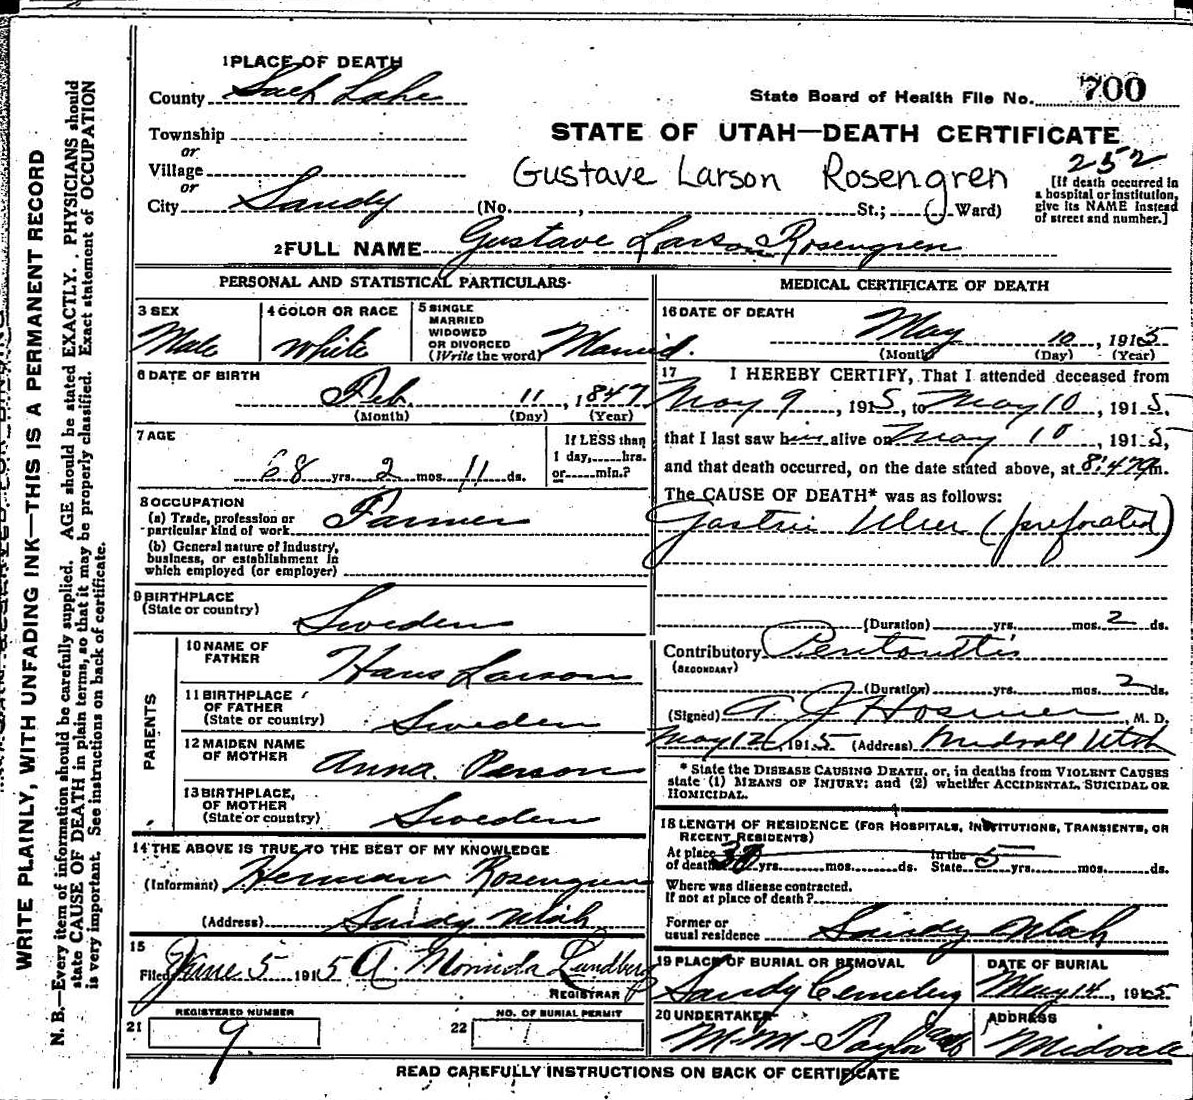 1 PLACE OF DEATH
County Salt Lake
State Board of Health File No. 700
Township
or
STATE OF UTAH—DEATH CERTIFICATE
Village
or
Gustave Larson Rosengren
252
[If death occurred in a hospital or institution, give its NAME instead of street and number.]
City Sandy (No. , St.; Ward)
2 FULL NAME Gustave Larson Rosengren
PERSONAL AND STATISTICAL PARTICULARS
3 SEX
Male
4 COLOR OR RACE
White
5 SINGLE
MARRIED
WIDOWED
OR DIVORCED
(Write the word) Married.
6 DATE OF BIRTH
Feb. 11, 1847
(Month) (Day) (Year)
7 AGE
68 yrs. 2 mos. 11 ds.
If LESS than
1 day, hrs.
or min.?
8 OCCUPATION
(a) Trade, profession or
particular kind of work Farmer
(b) General nature of Industry,
business, or establishment in
which employed (or employer)
9 BIRTHPLACE
(State or country) Sweden
PARENTS
10 NAME OF
FATHER Hans Larson
11 BIRTHPLACE
OF FATHER
(State or country) Sweden
12 MAIDEN NAME
OF MOTHER Anna Person
13 BIRTHPLACE,
OF MOTHER
(State or country) Sweden
14 THE ABOVE IS TRUE TO THE BEST OF MY KNOWLEDGE
(Informant) Herman Rosengren
(Address) Sandy Utah
15
Filed June 5 1915 A. Lundberg
REGISTRAR
21 REGISTERED NUMBER
9
22 NO. OF BURIAL PERMIT
MEDICAL CERTIFICATE OF DEATH
16 DATE OF DEATH
May 10, 1915
(Month) (Day) (Year)
17 I HEREBY CERTIFY, That I attended deceased from
May 9, 1915, to May 10, 1915.
that I last saw him alive on May 10, 1915,
and that death occurred, on the date stated above, at m.
The CAUSE OF DEATH* was as follows:
Gastric Ulcer (preforated)
(Duration) yrs. mos. 2 ds.
Contributory
(SECONDARY)
(Duration) yrs. mos. 2 ds.
(Signed) A J Hosmer, M. D.
May 12, 1915 (Address) Midvale Utah
* State the DISEASE CAUSING DEATH, or, in deaths from VIOLENT CAUSES
state (1) MEANS OF INJURY; and (2) whether ACCIDENTAL, SUICIDAL OR
HOMICIDAL.
18 LENGTH OF RESIDENCE (FOR HOSPITALS, INSTITUTIONS, TRANSIENTS, OR
RECENT RESIDENTS)
At place In the
of death yrs. mos. ds. State 5 yrs. mos. ds.
Where was disease contracted,
If not at place of death?
Former or
usual residence Sandy Utah
19 PLACE OF BURIAL OR REMOVAL
Sandy Cemetery
DATE OF BURIAL
May 14, 1915
20 UNDERTAKER
M. M. Taylor
ADDRESS
Midvale
READ CAREFULLY INSTRUCTIONS ON BACK OF CERTIFICATE
WRITE PLAINLY, WITH UNFADING INK—THIS IS A PERMANENT RECORD
N. B.—Every item of information should be carefully supplied. AGE should be stated EXACTLY. PHYSICIANS should
state CAUSE OF DEATH in plain terms, so that it may be properly classified. Exact statement of OCCUPATION
is very important. See instructions on back of certificate.